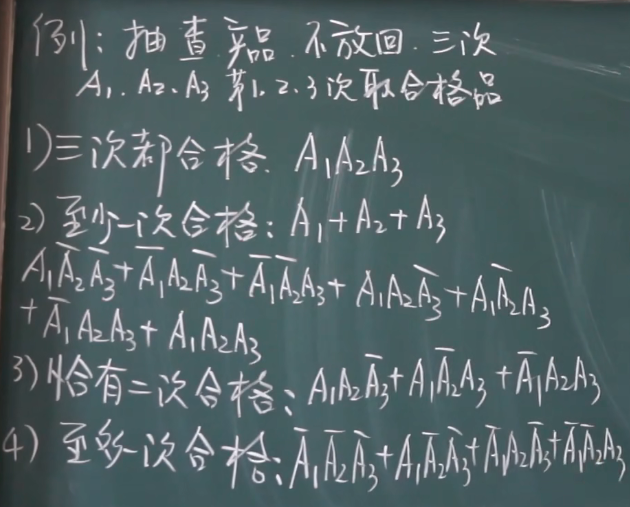 例: 抽查产品.不放回.三次
A₁.A₂.A₃ 第1.2.3次取合格品
1)三次都合格. A₁A₂A₃
2)至少一次合格: A₁+A₂+A₃
A₁A̅₂A̅₃+A̅₁A₂A̅₃+A̅₁A̅₂A₃+A₁A₂A̅₃+A₁A̅₂A₃
+A̅₁A₂A₃+A₁A₂A₃
3)恰有二次合格: A₁A₂A̅₃+A₁A̅₂A₃+A̅₁A₂A₃
4)至多一次合格: A̅₁A̅₂A̅₃+A₁A̅₂A̅₃+A̅₁A₂A̅₃+A̅₁A̅₂A₃